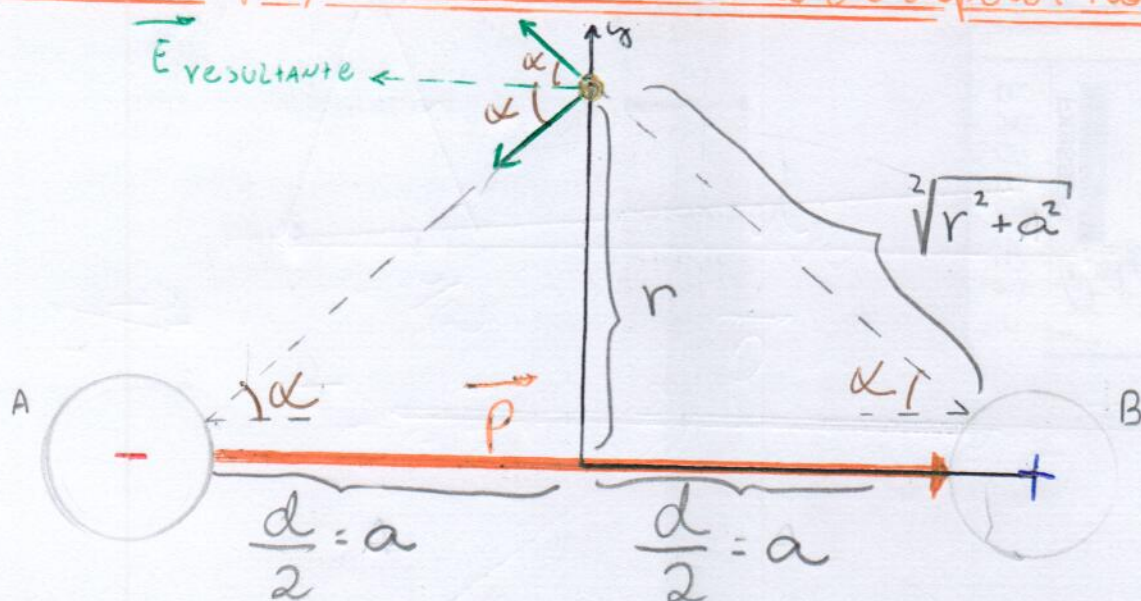 y
E resultante
α
α
√²r²+a²
r
A
α
P
α
B
-
+
d/2 = a
d/2 = a